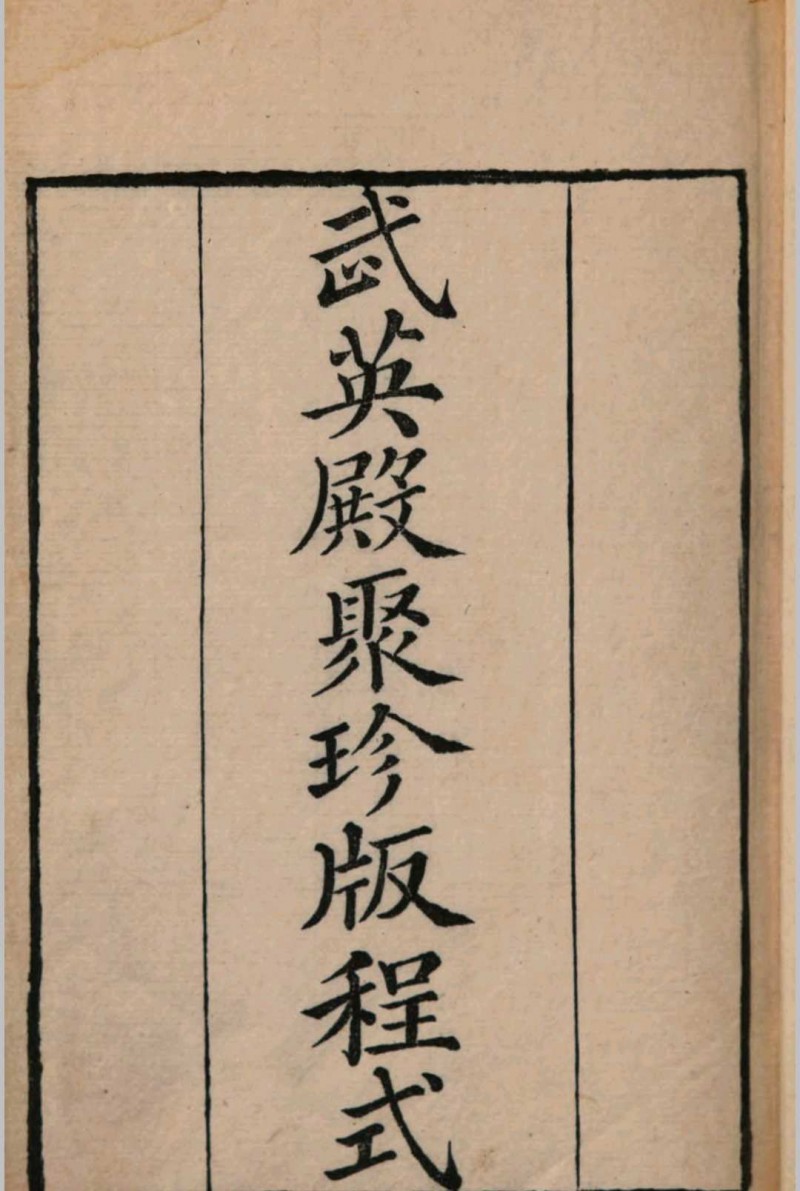 武英殿聚珍版程式